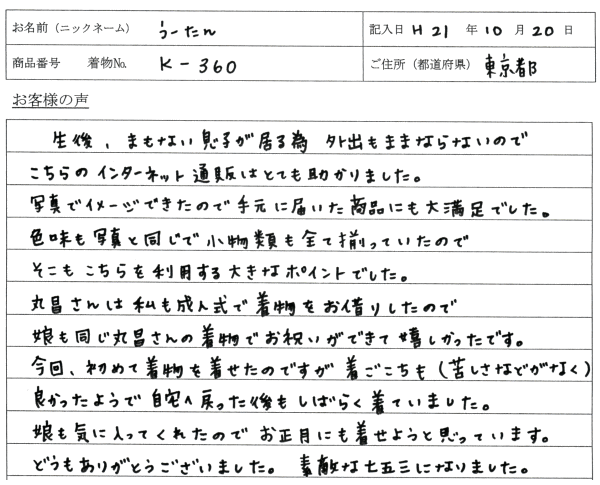 お名前（ニックネーム） うーたん 記入日 H 21 年 10 月 20 日
商品番号 着物No. K-360 ご住所（都道府県） 東京都
お客様の声
生後、まもない息子が居る為 外出もままならないので
こちらのインターネット通販はとても助かりました。
写真でイメージできたので手元に届いた商品にも大満足でした。
色味も写真と同じで小物類も全て揃っていたので
そこもこちらを利用する大きなポイントでした。
丸昌さんは私も成人式で着物をお借りしたので
娘も同じ丸昌さんの着物でお祝いができて嬉しかったです。
今回、初めて着物を着せたのですが着ごこちも（苦しさなどがなく）
良かったようで自宅へ戻った後もしばらく着ていました。
娘も気に入ってくれたのでお正月にも着せようと思っています。
どうもありがとうございました。 素敵な七五三になりました。